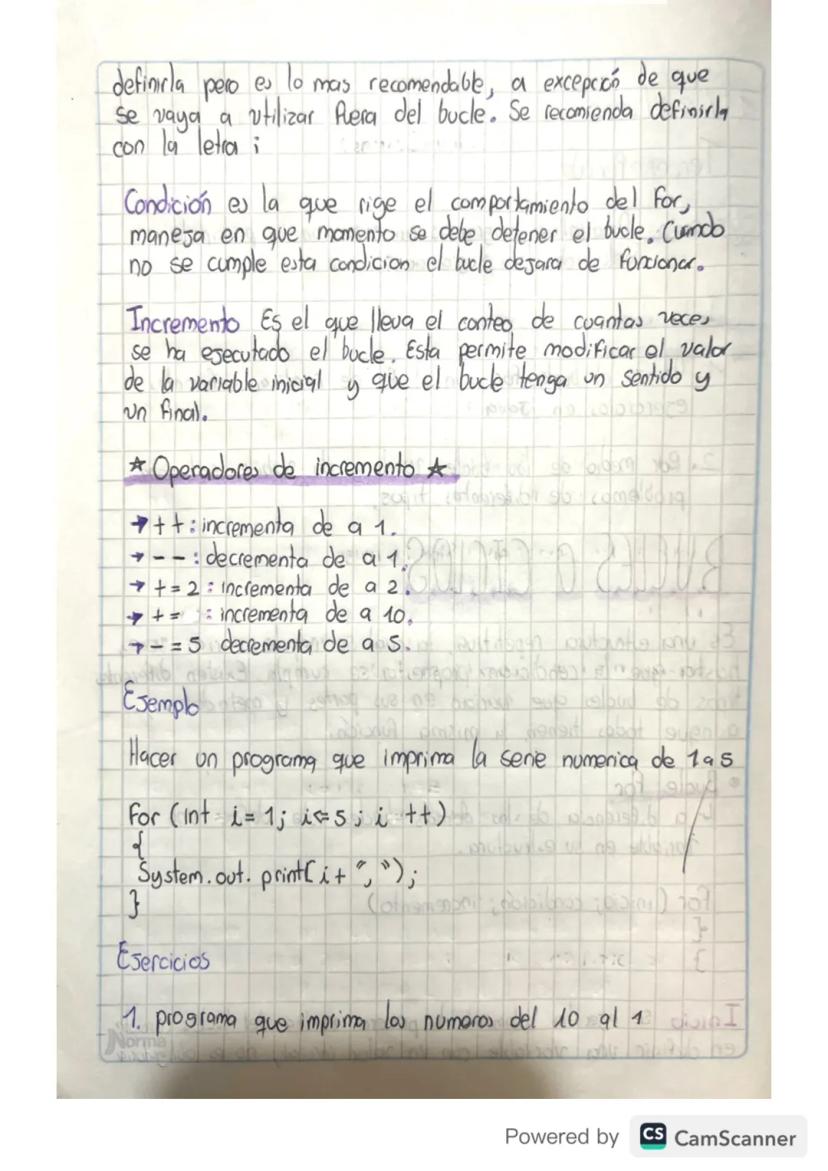 definirla pero es lo mas recomendable, a excepción de que
se vaya a utilizar fuera del bucle. Se recomienda definirla
con la letra i
Condición es la que rige el comportamiento del For,
maneja en que momento se debe detener el bucle. Cuando
no se cumple esta condicion el bucle dejara de funcionar.
Incremento Es el que lleva el conteo de cuantas veces
se ha ejecutado el bucle. Esta permite modificar el valor
de la variable inicial y que el bucle tenga un sentido y
un final.
★ Operadores de incremento ★
→ ++: incrementa de a 1.
→ --: decrementa de a 1.
→ +=2: incrementa de a 2.
→ += : incrementa de a 10.
→ -=5 decrementa de a 5.
Ejemplo
Hacer un programa que imprima la serie numerica de 1 a 5
For (int i=1; i<=5; i ++)
{
System.out.print(i+ ",");
}
Ejercicios
1. programa que imprima los numeros del 10 al 1
Norma
Powered by CS CamScanner